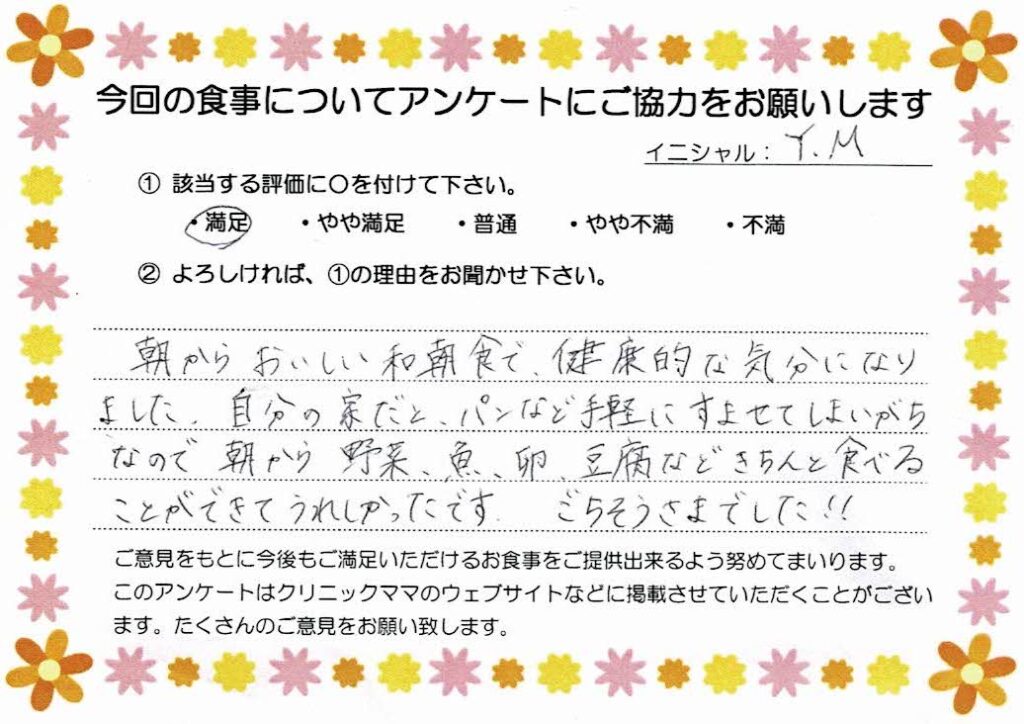 今回の食事についてアンケートにご協力をお願いします
イニシャル：Y.M
① 該当する評価に〇を付けて下さい。
・満足 ・やや満足 ・普通 ・やや不満 ・不満
② よろしければ、①の理由をお聞かせ下さい。
朝から おいしい 和朝食で、健康的な気分になり
ました、自分の家だと、パンなど手軽にすませてしまいがち
なので 朝から 野菜、魚、卵、豆腐などきちんと食べる
ことができてうれしかったです. ごちそうさまでした!!
ご意見をもとに今後もご満足いただけるお食事をご提供出来るよう努めてまいります。
このアンケートはクリニックママのウェブサイトなどに掲載させていただくことがござい
ます。たくさんのご意見をお願い致します。